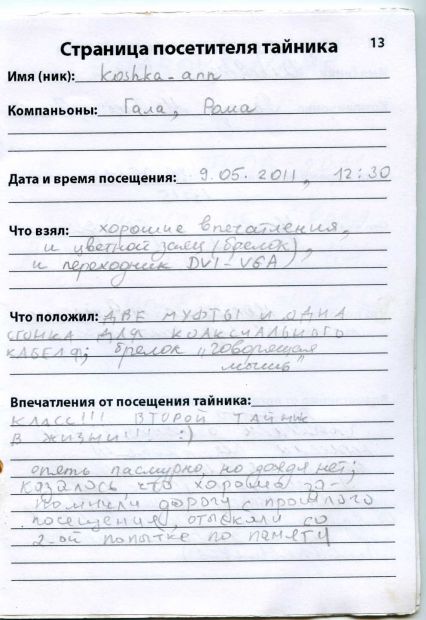 Страница посетителя тайника 13
Имя (ник): koshka-ann
Компаньоны: Гала, Рома
Дата и время посещения: 9.05.2011, 12:30
Что взял: хорошие впечатления,
и цветной заяц (брелок),
и переходник DVI-VGA
Что положил: ДВЕ МУФТЫ И ОДНА
ГОНКА ДЛЯ КОАКСИАЛЬНОГО
КАБЕЛЯ; брелок „говорящая
мышь"
Впечатления от посещения тайника:
КЛАСС!!! ВТОРОЙ ТАЙНИК
В ЖИЗНИ!!! :)
опять пасмурно, но дождя нет;
казалось, что хорошо за-
помнили дорогу с прошлого
посещения, отыскали со
2-ой попытке по памяти